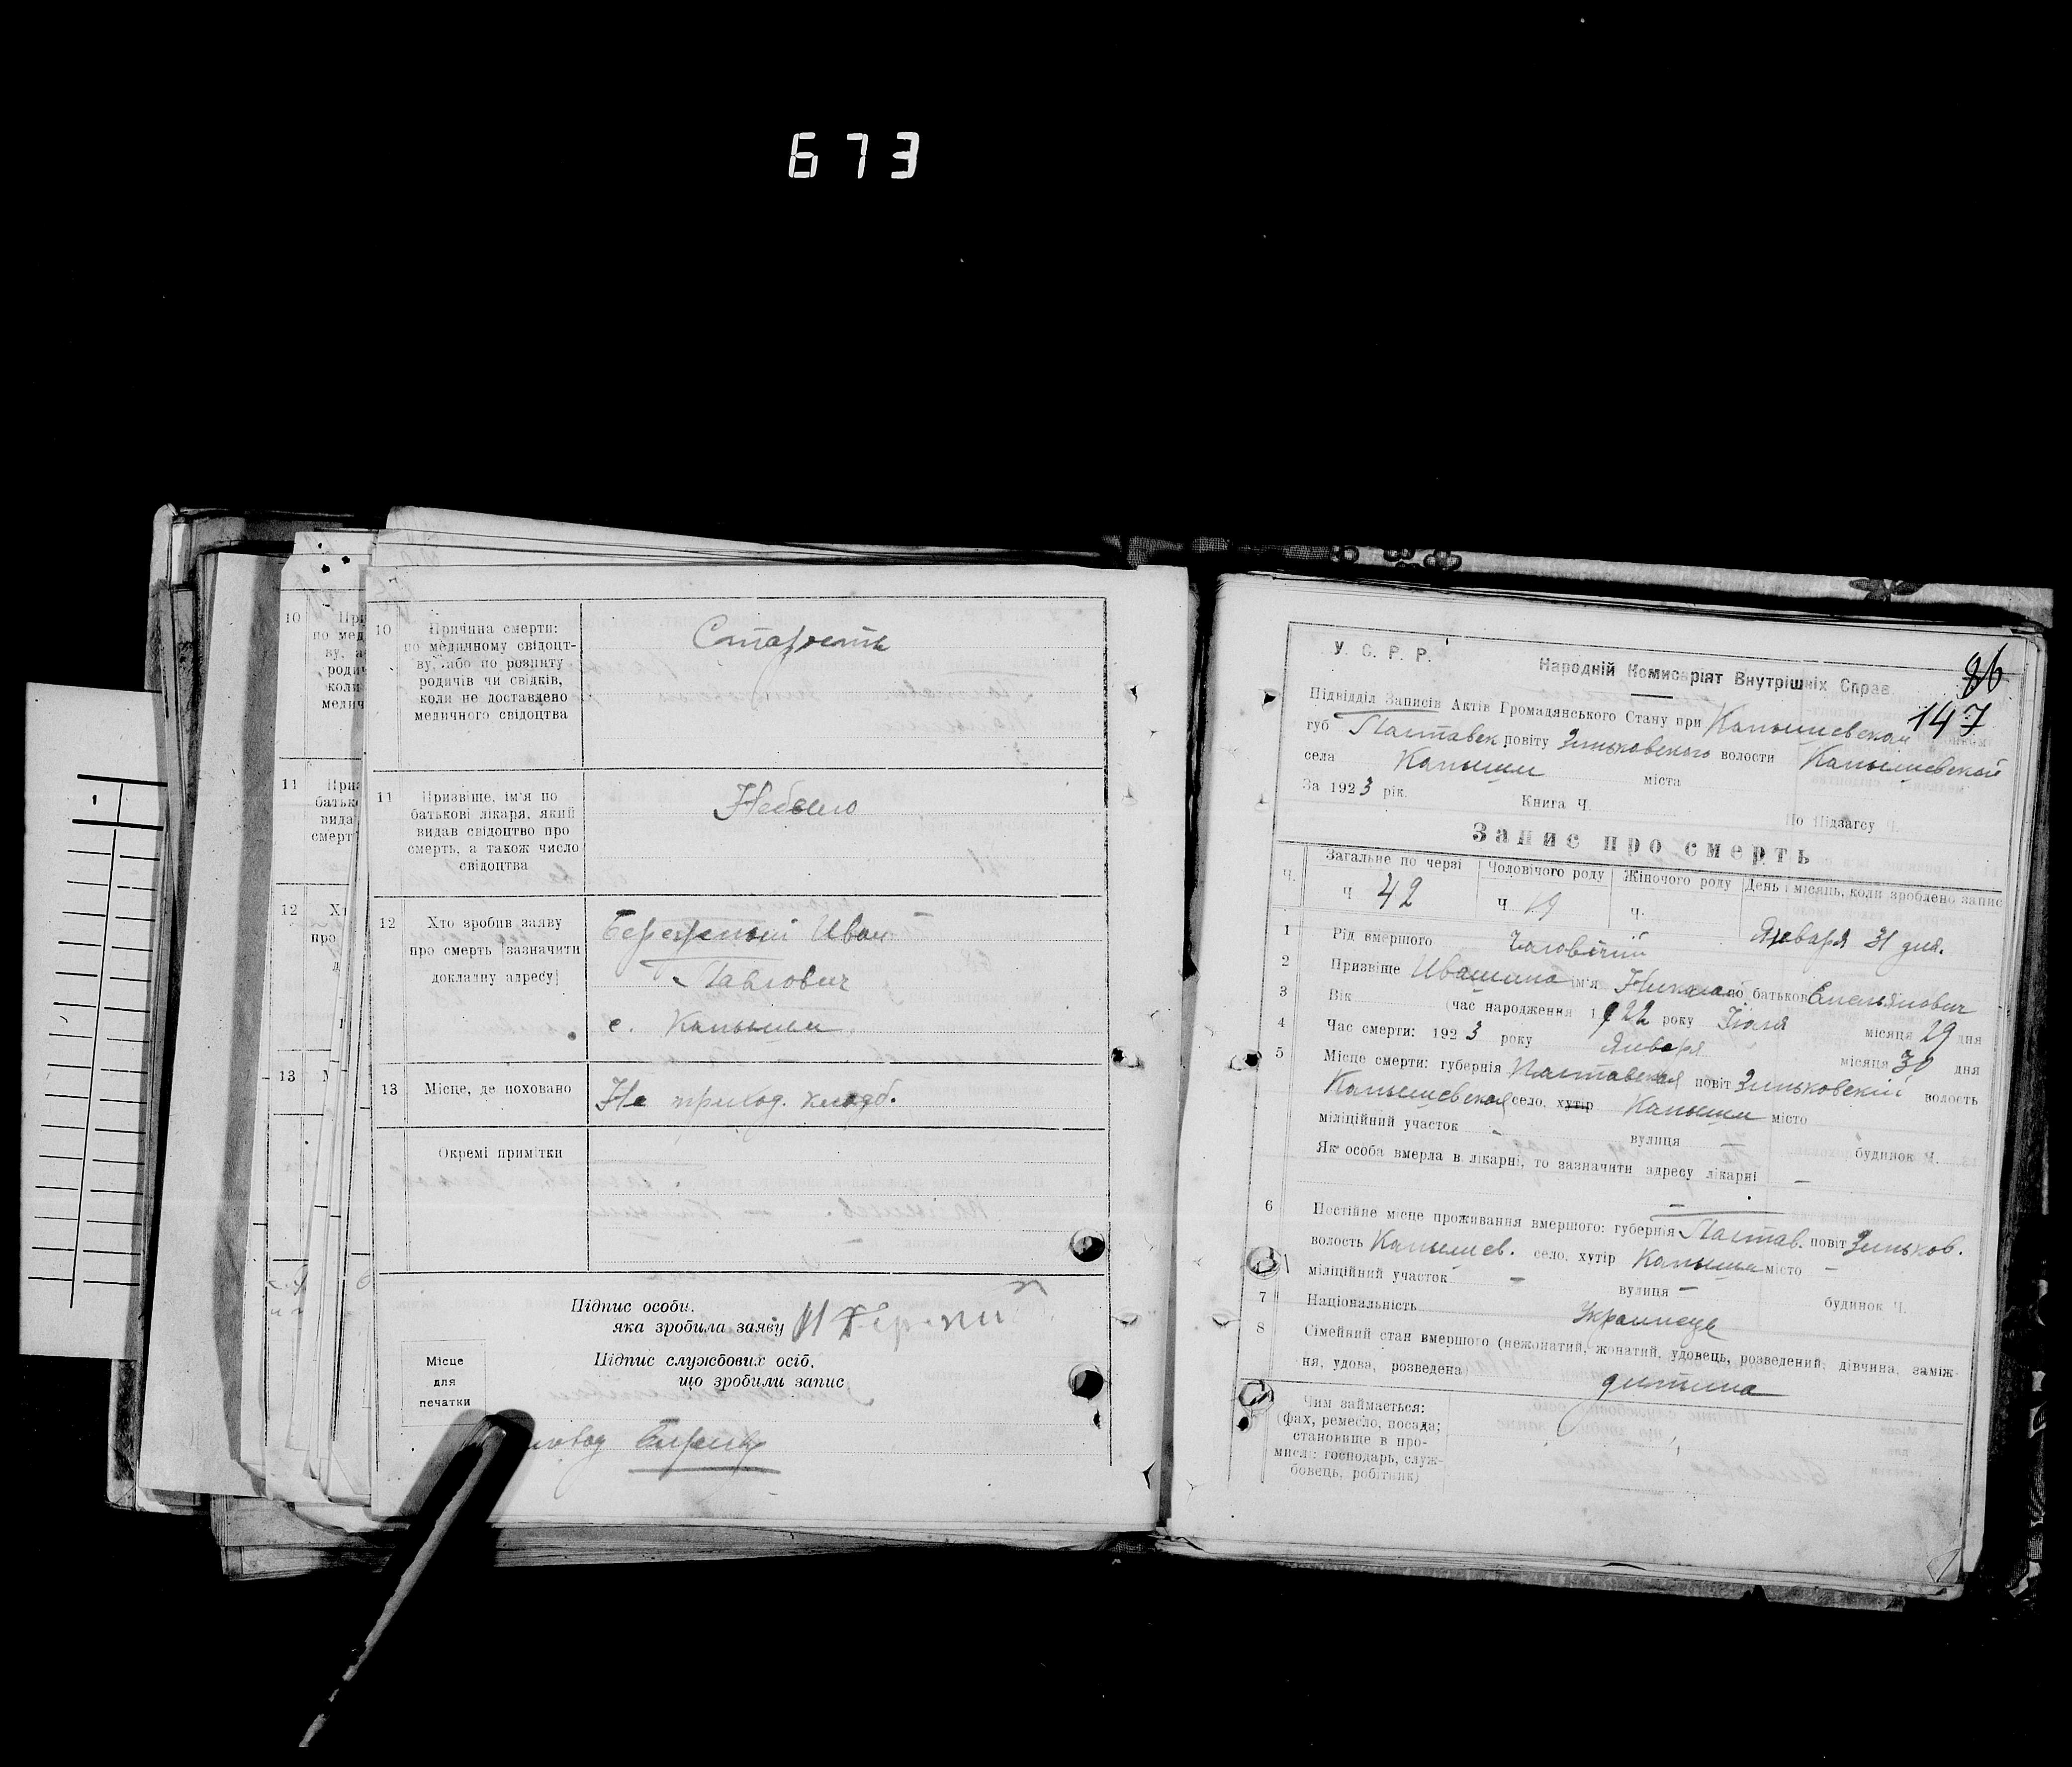 673
10
Причина смерти:
по медичному свідоцт-
ву, або по розпиту
родичів чи свідків,
коли не доставлено
медичного свідоцтва
Старость
11
Призвіще, ім'я по
батькові лікаря, який
видав свідоцтво про
смерть, а також число
свідоцтва
Небыло
12
Хто зробив заяву
про смерть (зазначити
докладну адресу)
Иван
Павлович
с. Капыши
13
Місце, де поховано
На приход. кладб.
Окремі примітки
Підпис особи,
яка зробила заяву
Підпис службових осіб,
що зробили запис
Місце
для
печатки
86
У. С. Р. Р.
Народній Комисаріят Внутрішніх Справ
147
Підвідділ Записів Актів Громадянського Стану при Капышевской
губ Полтавск повіту Зиньковского волости Капышевской
села Капыши міста
За 1923 рік. Книга Ч. По Підзагсу Ч.
Запис про смерть
Ч. Загальне по черзі Чоловічого роду Жіночого роду День і місяць, коли зроблено запис
Ч 42 Ч 19 Ч. Января 31 дня.
1 Рід вмершого Чаловічий
2 Призвіще Ивашина ім'я Николай по батькові Емельянович
3 Вік (час народження 1922 року Іюля місяця 29 дня
4 Час смерти: 1923 року Января місяця 30 дня
5 Місце смерти: губернія Полтавская повіт Зиньковскій волость
Капышевская село, хутір Капыши місто
міліційний участок - вулиця будинок Ч.
Як особа вмерла в лікарні, то зазначити адресу лікарні -
6 Постійне місце проживання вмершого: губернія Полтав. повіт Зиньков.
волость Капышев. село, хутір Капыши місто -
міліційний участок - вулиця - будинок Ч.
7 Національність Украинець
8 Сімейний стан вмершого (нежонатий, жонатий, удовець, розведений, дівчина, заміж-
ня, удова, розведена) дитина
Чим займається:
(фах, ремесло, посада;
становище в про-
мислі: господарь, служ-
бовець, робітник)